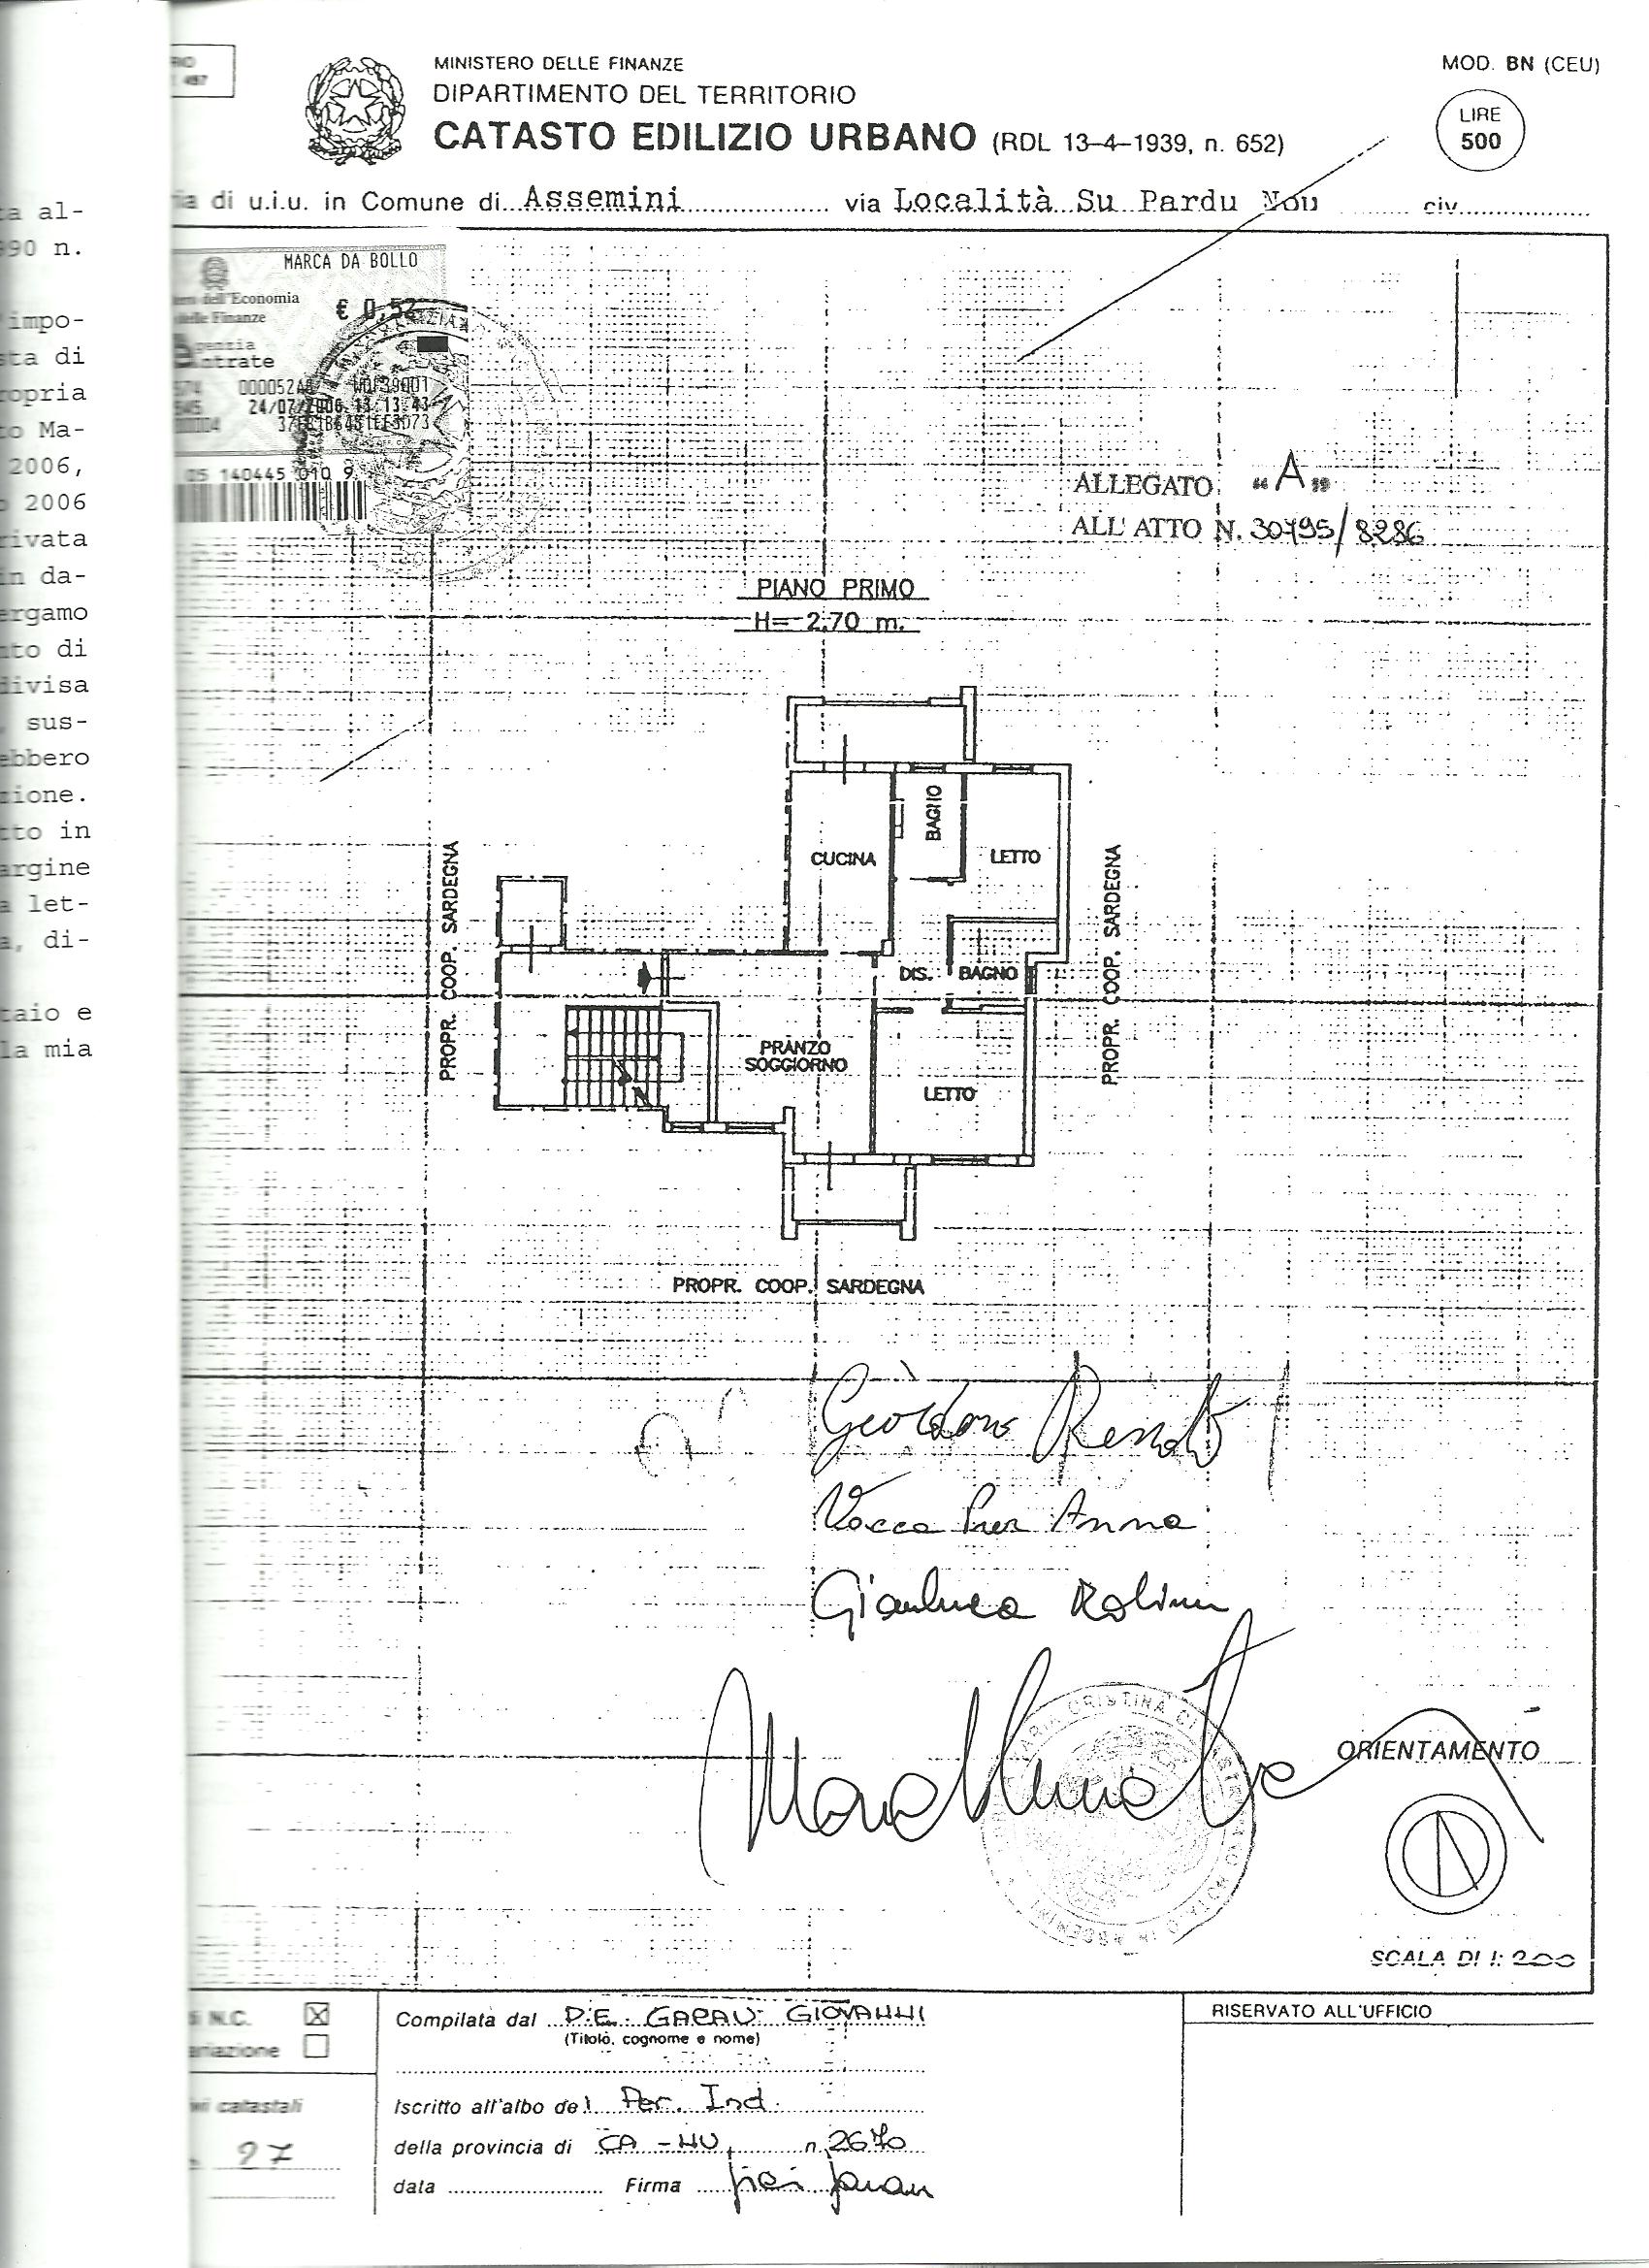 RIO
497
MINISTERO DELLE FINANZE
DIPARTIMENTO DEL TERRITORIO
CATASTO EDILIZIO URBANO (RDL 13-4-1939, n. 652)
MOD. BN (CEU)
LIRE
500
ia di u.i.u. in Comune di Assemini via Località Su Pardu Nou civ.
ta al-
990 n.
impo-
sta di
ropria
to Ma-
2006,
o 2006
rivata
in da-
ergamo
nto di
divisa
, sus-
ebbero
zione.
tto in
argine
a let-
a, di-
taio e
la mia
MARCA DA BOLLO
dell'Economia
delle Finanze
€ 0,52
genzia
ntrate
24/07/2006 13:13:43
05 140445 010 9
ALLEGATO "A"
ALL'ATTO N. 30795/8286
PIANO PRIMO
H= 2,70 m.
CUCINA
BAGNO
LETTO
PROPR. COOP. SARDEGNA
PROPR. COOP. SARDEGNA
DIS.
BAGNO
PRANZO
SOGGIORNO
LETTO
PROPR. COOP. SARDEGNA
Vacca Pier Anna
Gianluca
MARIA CRISTINA
ORIENTAMENTO
SCALA DI 1: 200
N.C.
ariazione
Compilata dal P.E. GARAU GIOVANNI
(Titolo, cognome e nome)
RISERVATO ALL'UFFICIO
catastali
Iscritto all'albo del Per. Ind.
27
della provincia di CA-NU n. 2670
data Firma